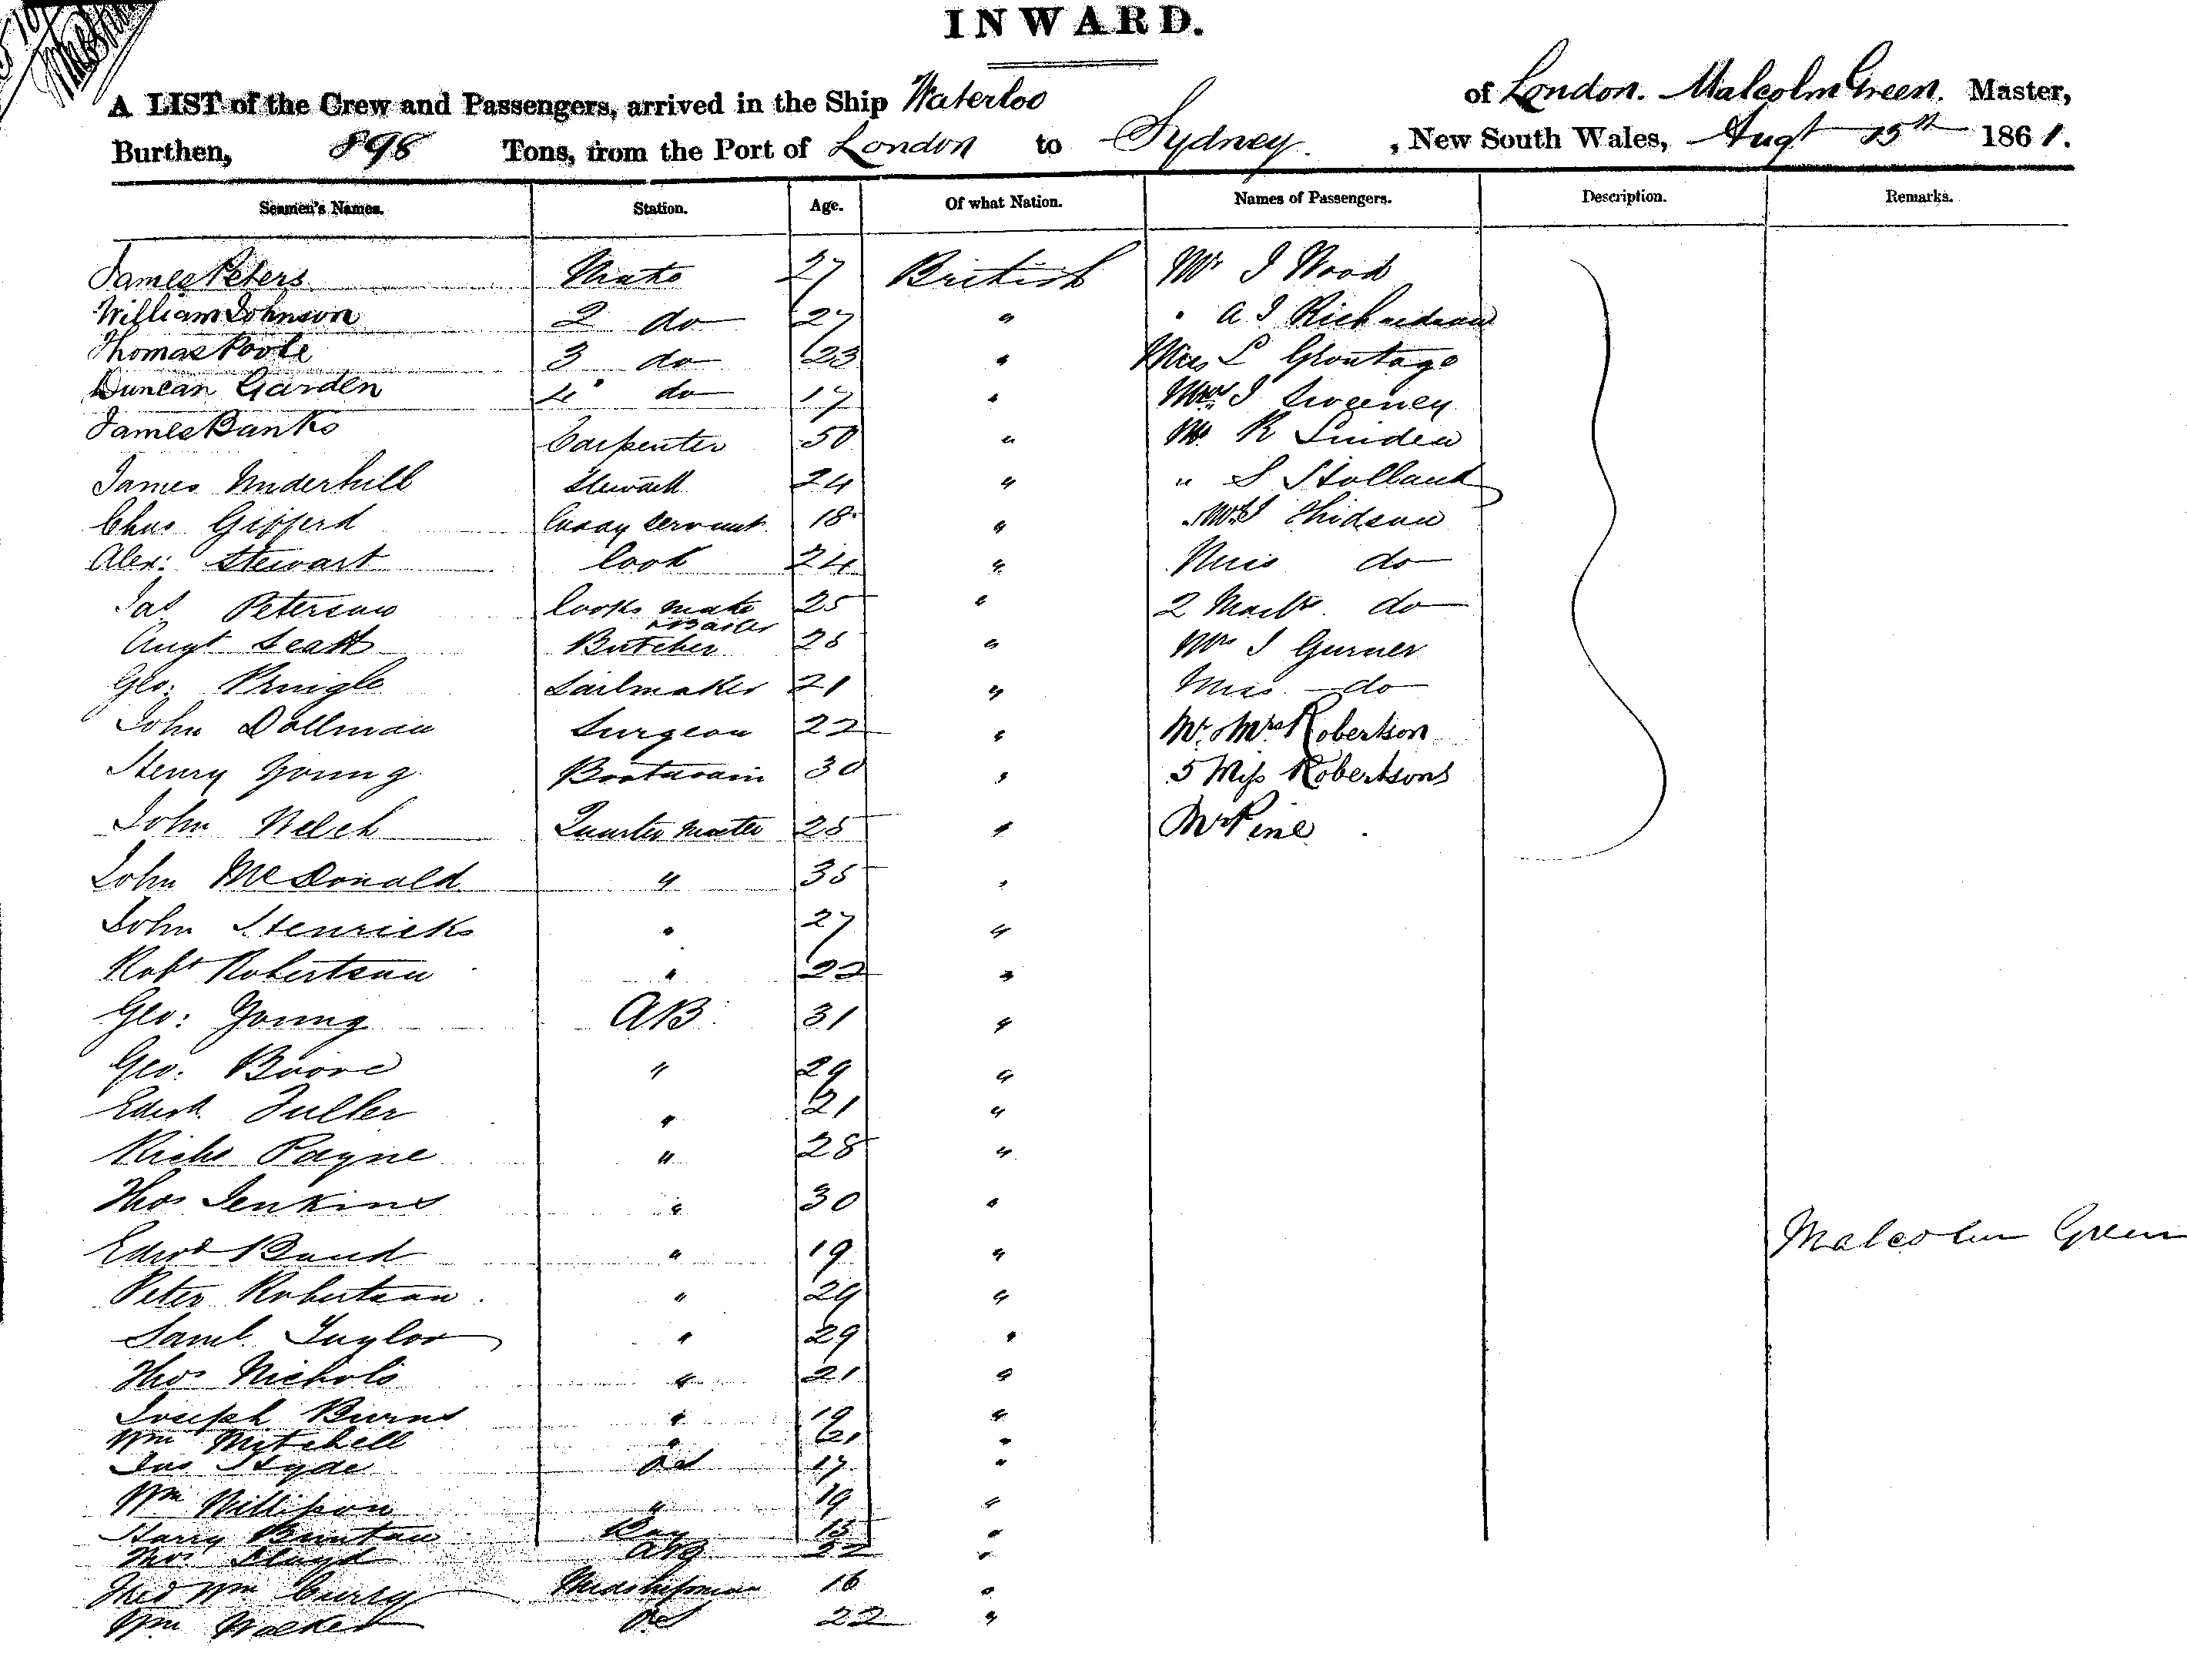 INWARD.
A LIST of the Crew and Passengers, arrived in the Ship Waterloo of London. Malcolm Green. Master,
Burthen, 898 Tons, from the Port of London to Sydney. , New South Wales, Augt 15th 1861.
Seamen's Names. Station. Age. Of what Nation. Names of Passengers. Description. Remarks.
James Peters Mate 27 British Mr J Wood
William Johnson 2 do 27 " " A J Richardson
Thomas Poole 3 do 23 " Miss L
Duncan Garden 4 do 17 " Mrs J Sweeney
James Banks Carpenter 50 " Mr R Linden
James Underhill Steward 24 " " S Holland
Chas Gifferd Cuddy Servant 18 " Mrs J
Alex: Stewart Cook 24 " Miss do
Jas Peterson Cooks mate 25 " 2 Mastrs do
& Baker
Augt Butcher 25 " Mrs J Gurner
Geo: Pringle Sailmaker 21 " Miss do
John Dollman Surgeon 22 " Mr & Mrs Robertson
Henry Young Boatswain 30 " 5 Miss Robertsons
John Welch Quarter master 25 " Mr Pine
John McDonald " 35 "
John Henricks " 27 "
Robt Robertson " 22 "
Geo: Young AB 31 "
Geo: " 29 "
Edwd Fuller " 21 "
Richd Payne " 28 "
Thos Jenkins " 30 "
Malcolm Green
Edwd " 19 "
Peter Robertson " 24 "
Saml Taylor " 29 "
Thos Nichols " 21 "
Joseph Burns " 19 "
Wm Mitchell " 21 "
Jas Hyde OS 17 "
Wm " 19 "
Harry Boy 15 "
Thos Lloyd AB 22 "
Fred Wm Midshipman 16 "
Wm Walker OS 22 "